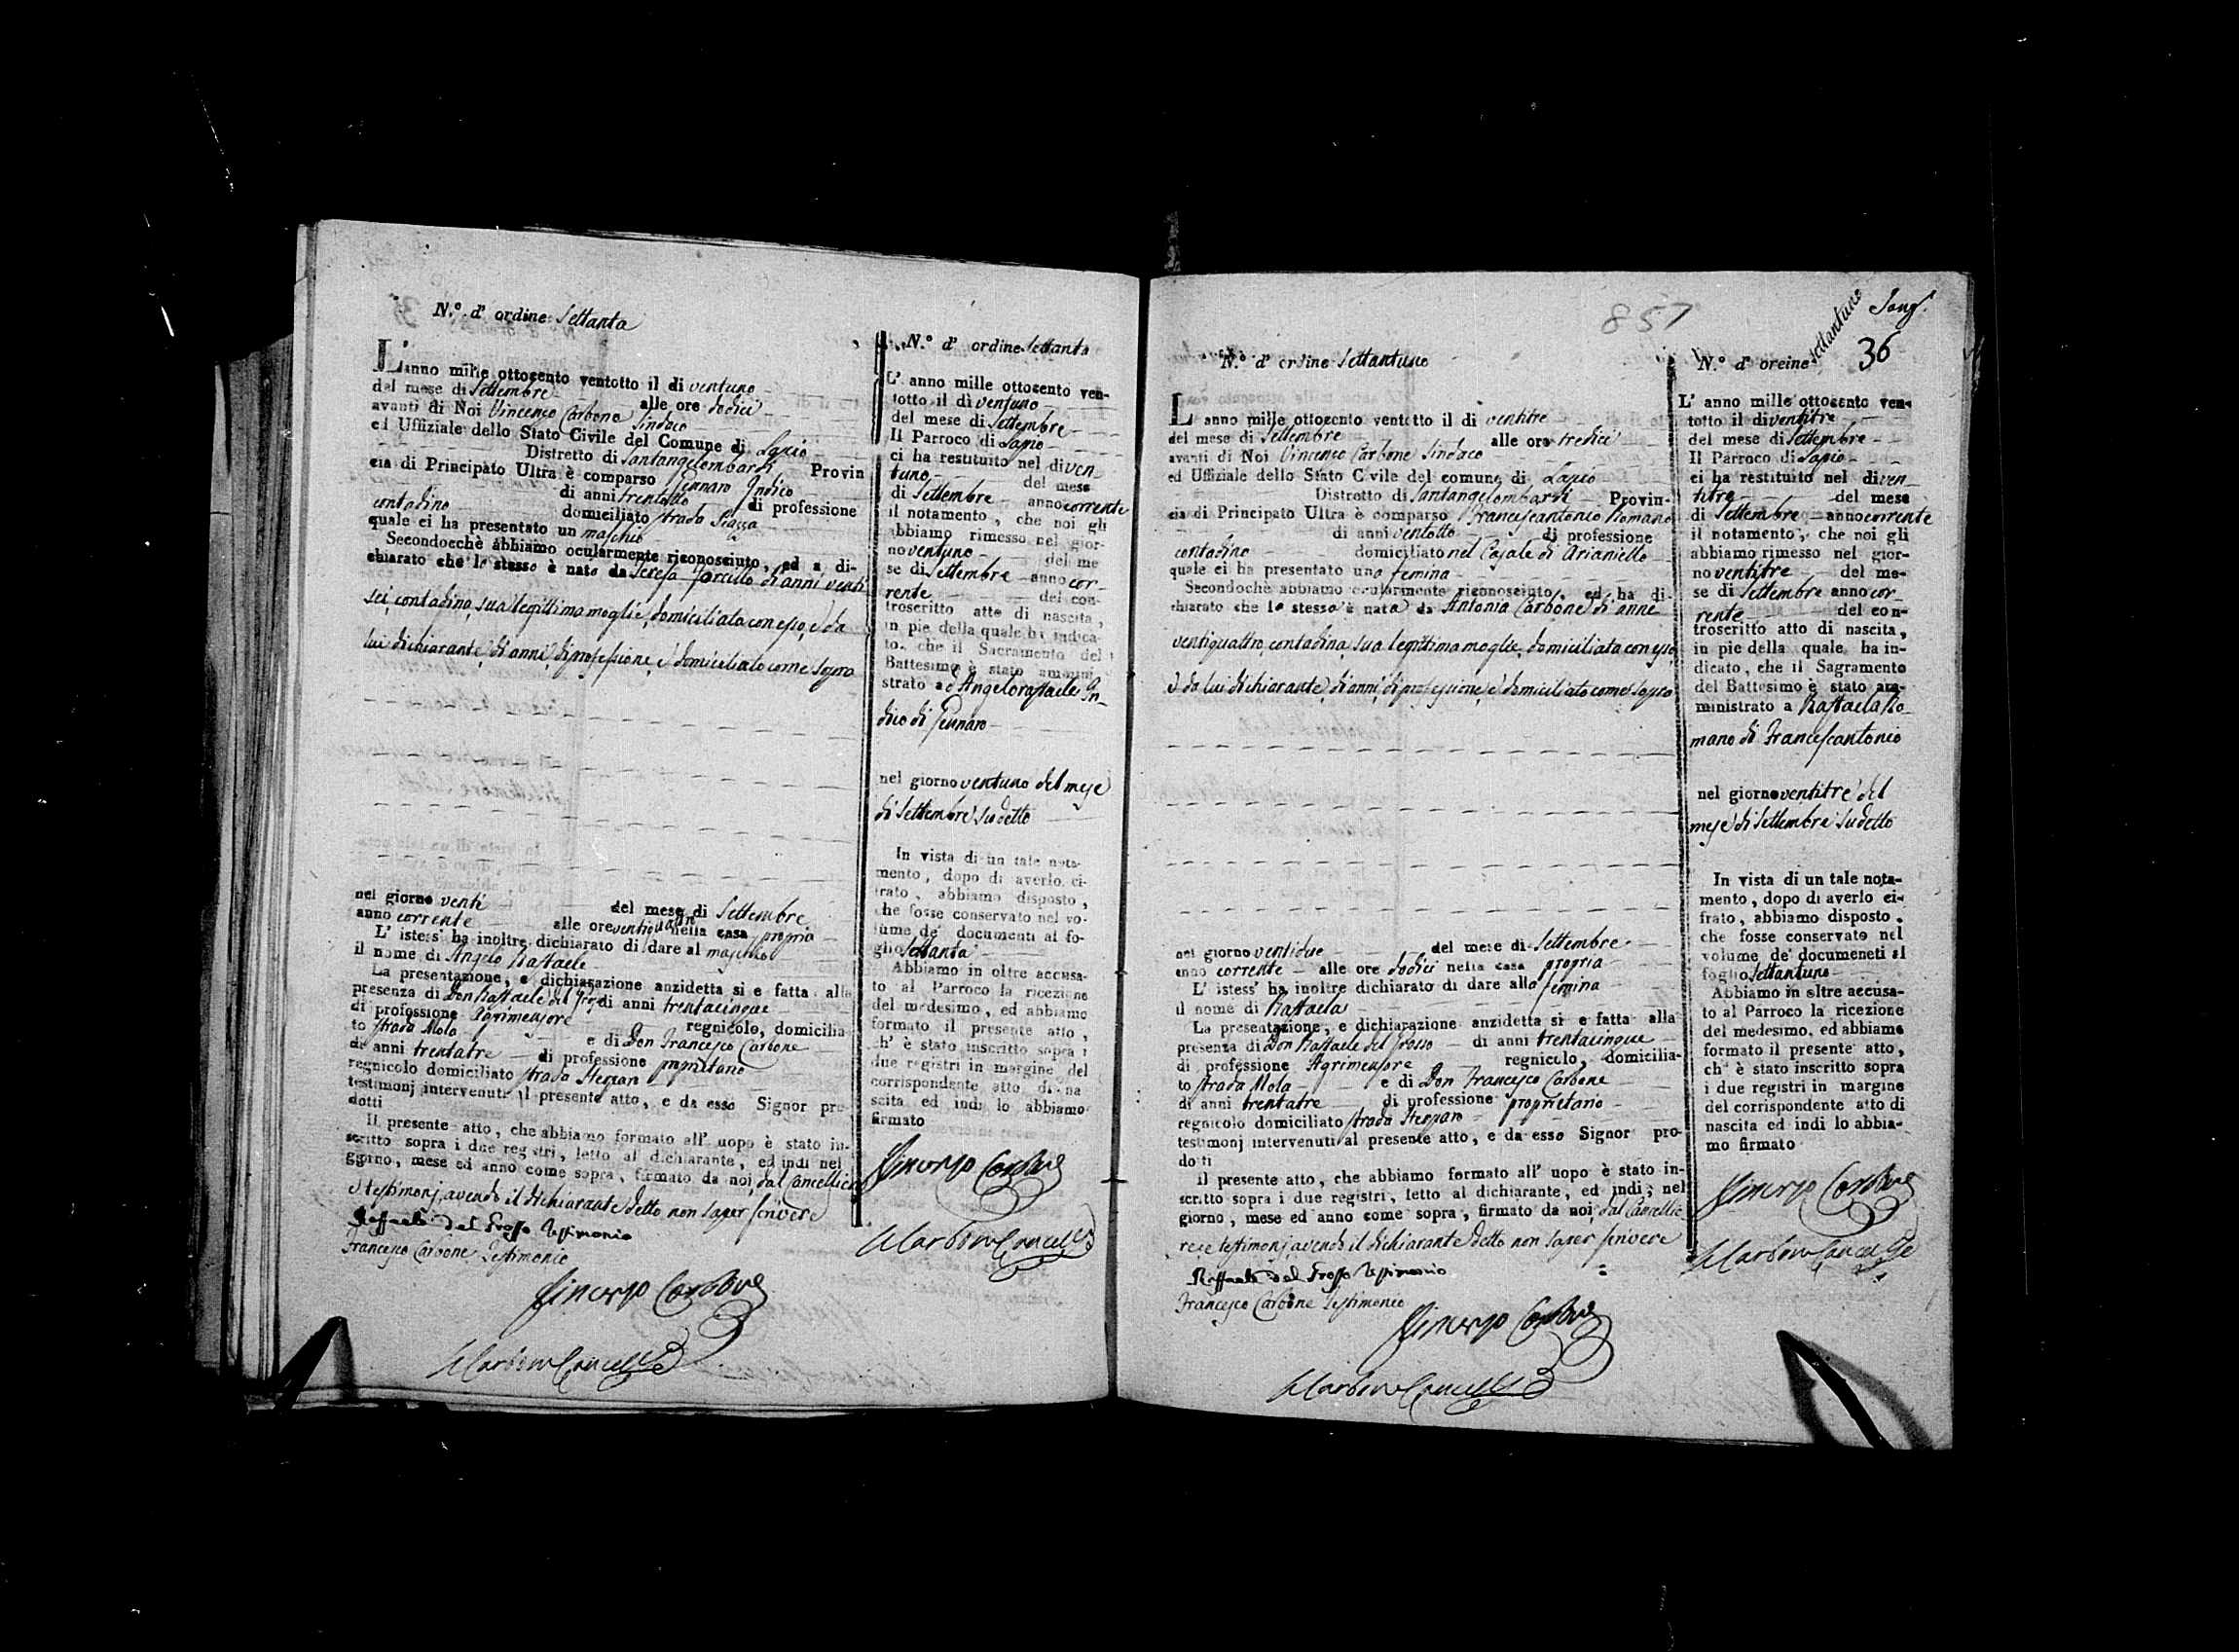 N.º d' ordine Settanta
L'anno mille ottocento ventotto il di ventuno
del mese di Settembre alle ore dodici
avanti di Noi Vincenzo Carbone Sindaco
ed Uffiziale dello Stato Civile del Comune di Lapio
Distretto di Santangelombardi Provin
cia di Principato Ultra è comparso Gennaro Indico
di anni trentotto di professione
contadino domiciliato strada Piazza
quale ci ha presentato un maschio
Secondocchè abbiamo ocularmente riconosciuto, ed a di-
chiarato che lo stesso è nato da Teresa Forcillo di anni venti
sei, contadina, sua legittima moglie, domiciliata con esso, e da
lui dichiarante, di anni, di professione, e domiciliato come sopra
nel giorno venti del mese di Settembre
anno corrente alle ore ventiquattro nella casa propria
L' istess' ha inoltre dichiarato di dare al maschio
il nome di Angelo Raffaele
La presentazione, e dichiarazione anzidetta si e fatta alla
presenza di Don Raffaele del Grosso di anni trentacinque
di professione Agrimensore regnicolo, domicilia-
to strada Mola e di Don Francesco Carbone
di anni trentatre di professione proprietario
regnicolo domiciliato strada
testimonj intervenuti al presente atto, e da esso Signor pro
dotti
Il presente atto, che abbiamo formato all' uopo è stato in-
scritto sopra i due registri, letto al dichiarante, ed indi nel
giorno, mese ed anno come sopra, firmato da noi, dal Cancelliere
e testimonj, avendo il dichiarante detto non saper scrivere
Raffaele del Grosso Testimonio
Francesco Carbone Testimonio
Vincenzo Carbone
N.º d' ordine Settanta
L' anno mille ottocento ven-
totto il dì ventuno
del mese di Settembre
Il Parroco di Lapio
ci ha restituito nel di ven_
tuno del mese
di Settembre anno corrente
il notamento, che noi gli
abbiamo rimesso nel gior-
no ventuno del me
se di Settembre anno cor_
rente del con-
troscritto atto di nascita,
in pie della quale ha indica-
to, che il Sacramento del
Battesimo è stato ammini
strato ad Angeloraffaele In_
dico di Gennaro
nel giorno ventuno del mese
di Settembre sudetto
In vista di un tale nota-
mento, dopo di averlo ci-
frato, abbiamo disposto,
che fosse conservato nel vo-
lume de' documenti al fo-
glio Settanta
Abbiamo in oltre accusa-
to al Parroco la ricezione
del medesimo, ed abbiamo
formato il presente atto,
ch' è stato inscritto sopra i
due registri in margine del
corrispondente atto di na
scita ed indi lo abbiamo
firmato
Vincenzo Carbone
857
36
N.º d' ordine Settantuno
L anno mille ottocento ventotto il di ventitre
del mese di Settembre alle ore tredici
avanti di Noi Vincenzo Carbone Sindaco
ed Uffiziale dello Stato Civile del comune di Lapio
Distretto di Santangelombardi Provin-
cia di Principato Ultra è comparso Francescantonio Romano
di anni ventotto di professione
contadino domiciliato nel Casale di Arianiello
quale ci ha presentato una femina
Secondochè abbiamo ocularmente riconosciuto, ed ha di-
chiarato che lo stesso è nata da Antonia Carbone di anne
ventiquattro contadina, sua legittima moglie, domiciliata con esso,
e da lui dichiarante, di anni, di professione, e domiciliato come sopra
nel giorno ventidue del mese di Settembre
anno corrente alle ore dodici nella casa propria
L' istess' ha inoltre dichiarato di dare alla femina
il nome di Raffaela
La presentazione, e dichiarazione anzidetta si e fatta alla
presenza di Don Raffaele del Grosso di anni trentacinque
di professione Agrimensore regnicolo, domicilia-
to strada Mola e di Don Francesco Carbone
di anni trentatre di professione proprietario
regnicolo domiciliato strada
testimonj intervenuti al presente atto, e da esso Signor pro-
dotti
Il presente atto, che abbiamo formato all' uopo è stato in-
scritto sopra i due registri, letto al dichiarante, ed indi, nel
giorno, mese ed anno come sopra, firmato da noi, dal Cancellie
re, e testimonj, avendo il dichiarante detto non saper scrivere
Raffaele del Grosso Testimonio
Francesco Carbone Testimonio
Vincenzo Carbone
N.º d' oreine Settantuno
L' anno mille ottocento ven-
totto il di ventitre
del mese di Settembre
Il Parroco di Lapio
ci ha restituito nel di ven_
titre del mese
di Settembre anno corrente
il notamento, che noi gli
abbiamo rimesso nel gior-
no ventitre del me-
se di Settembre anno cor_
rente del con-
troscritto atto di nascita,
in pie della quale ha in-
dicato, che il Sagramento
del Battesimo è stato am-
ministrato a Raffaela Ro_
mano di Francescantonio
nel giorno ventitre del
mese di Settembre sudetto
In vista di un tale nota-
mento, dopo di averlo ci-
frato, abbiamo disposto,
che fosse conservato nel
volume de' documeneti al
foglio Settantuno
Abbiamo in oltre accusa-
to al Parroco la ricezione
del medesimo, ed abbiamo
formato il presente atto,
ch' è stato inscritto sopra
i due registri in margine
del corrispondente atto di
nascita ed indi lo abbia-
mo firmato
Vincenzo Carbone